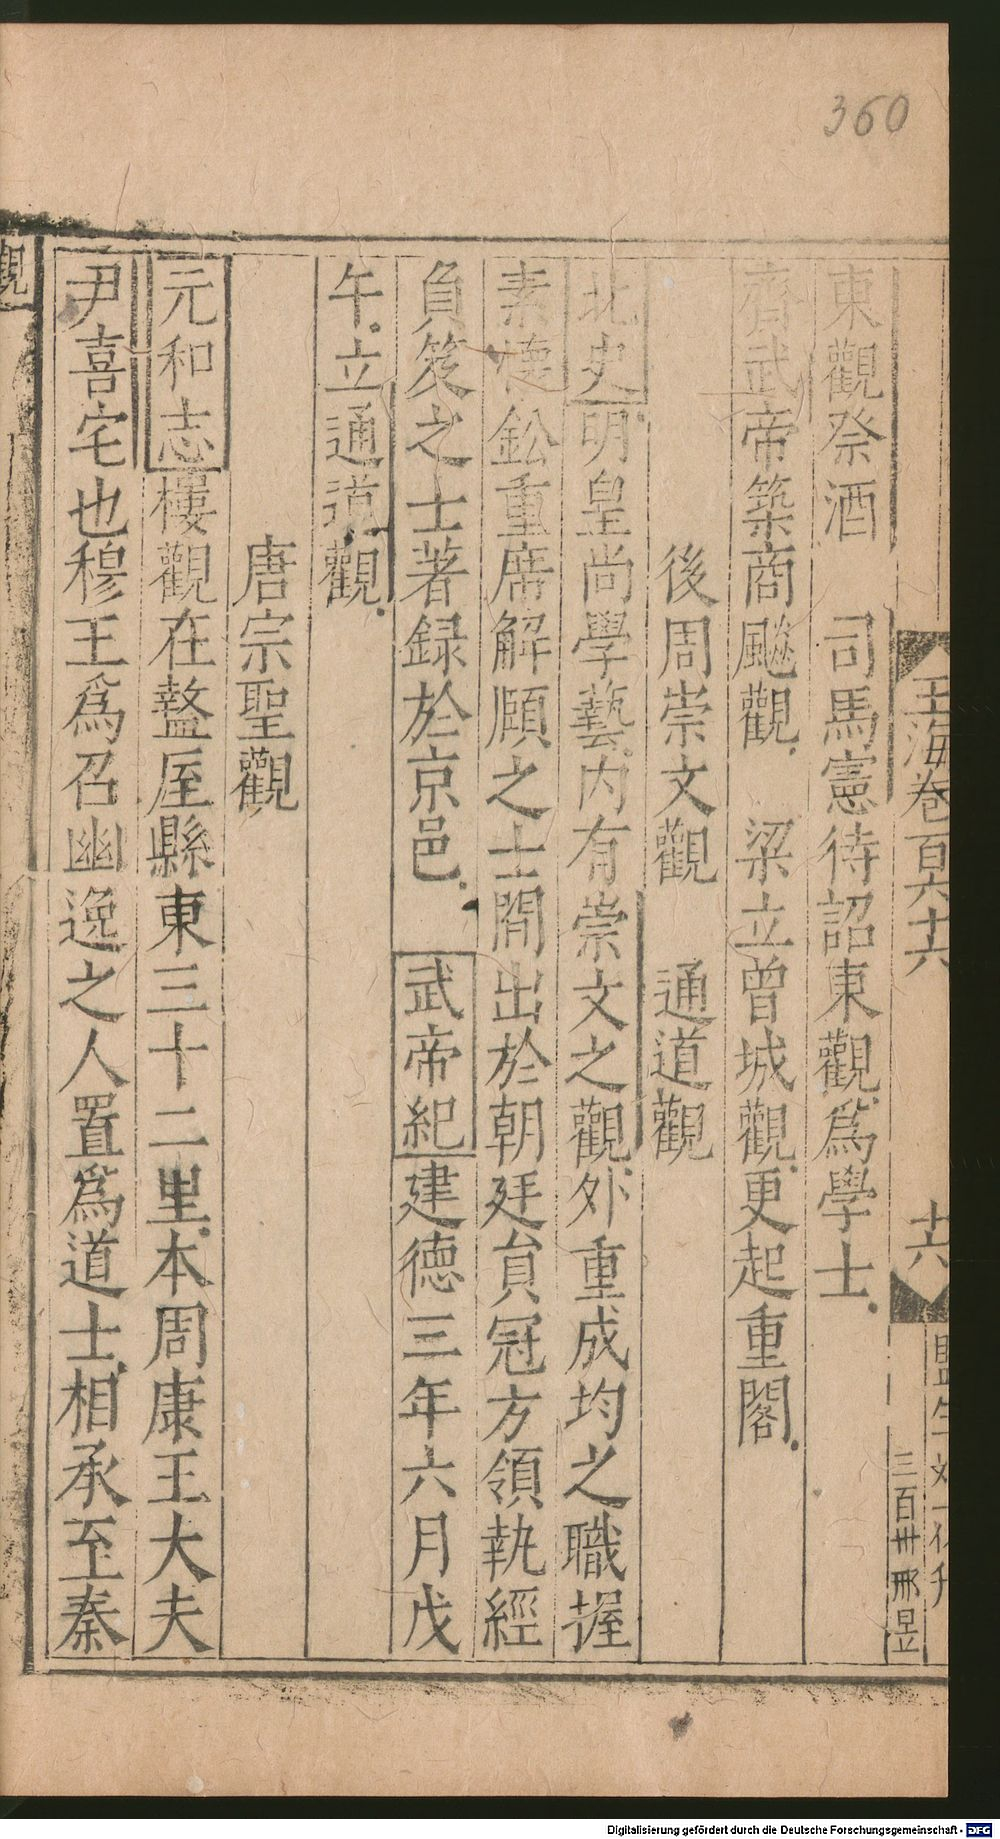 360
玉海卷百六十六
十六
三百卅 邢昱
東觀祭酒 司馬憲待詔東觀爲學士
齊武帝築商飈觀 梁立曾城觀更起重閣
後周崇文觀 通道觀
北史明皇尚學藝内有崇文之觀外重成均之職握
素懷鉛重席解頤之士間出於朝廷貟冠方領執經
負笈之士著録於京邑 武帝紀建德三年六月戊
午立通道觀
唐宗聖觀
元和志樓觀在盩厔縣東三十二里本周康王大夫
尹喜宅也穆王爲召幽逸之人置爲道士相承至秦
觀
Digitalisierung gefördert durch die Deutsche Forschungsgemeinschaft - DFG